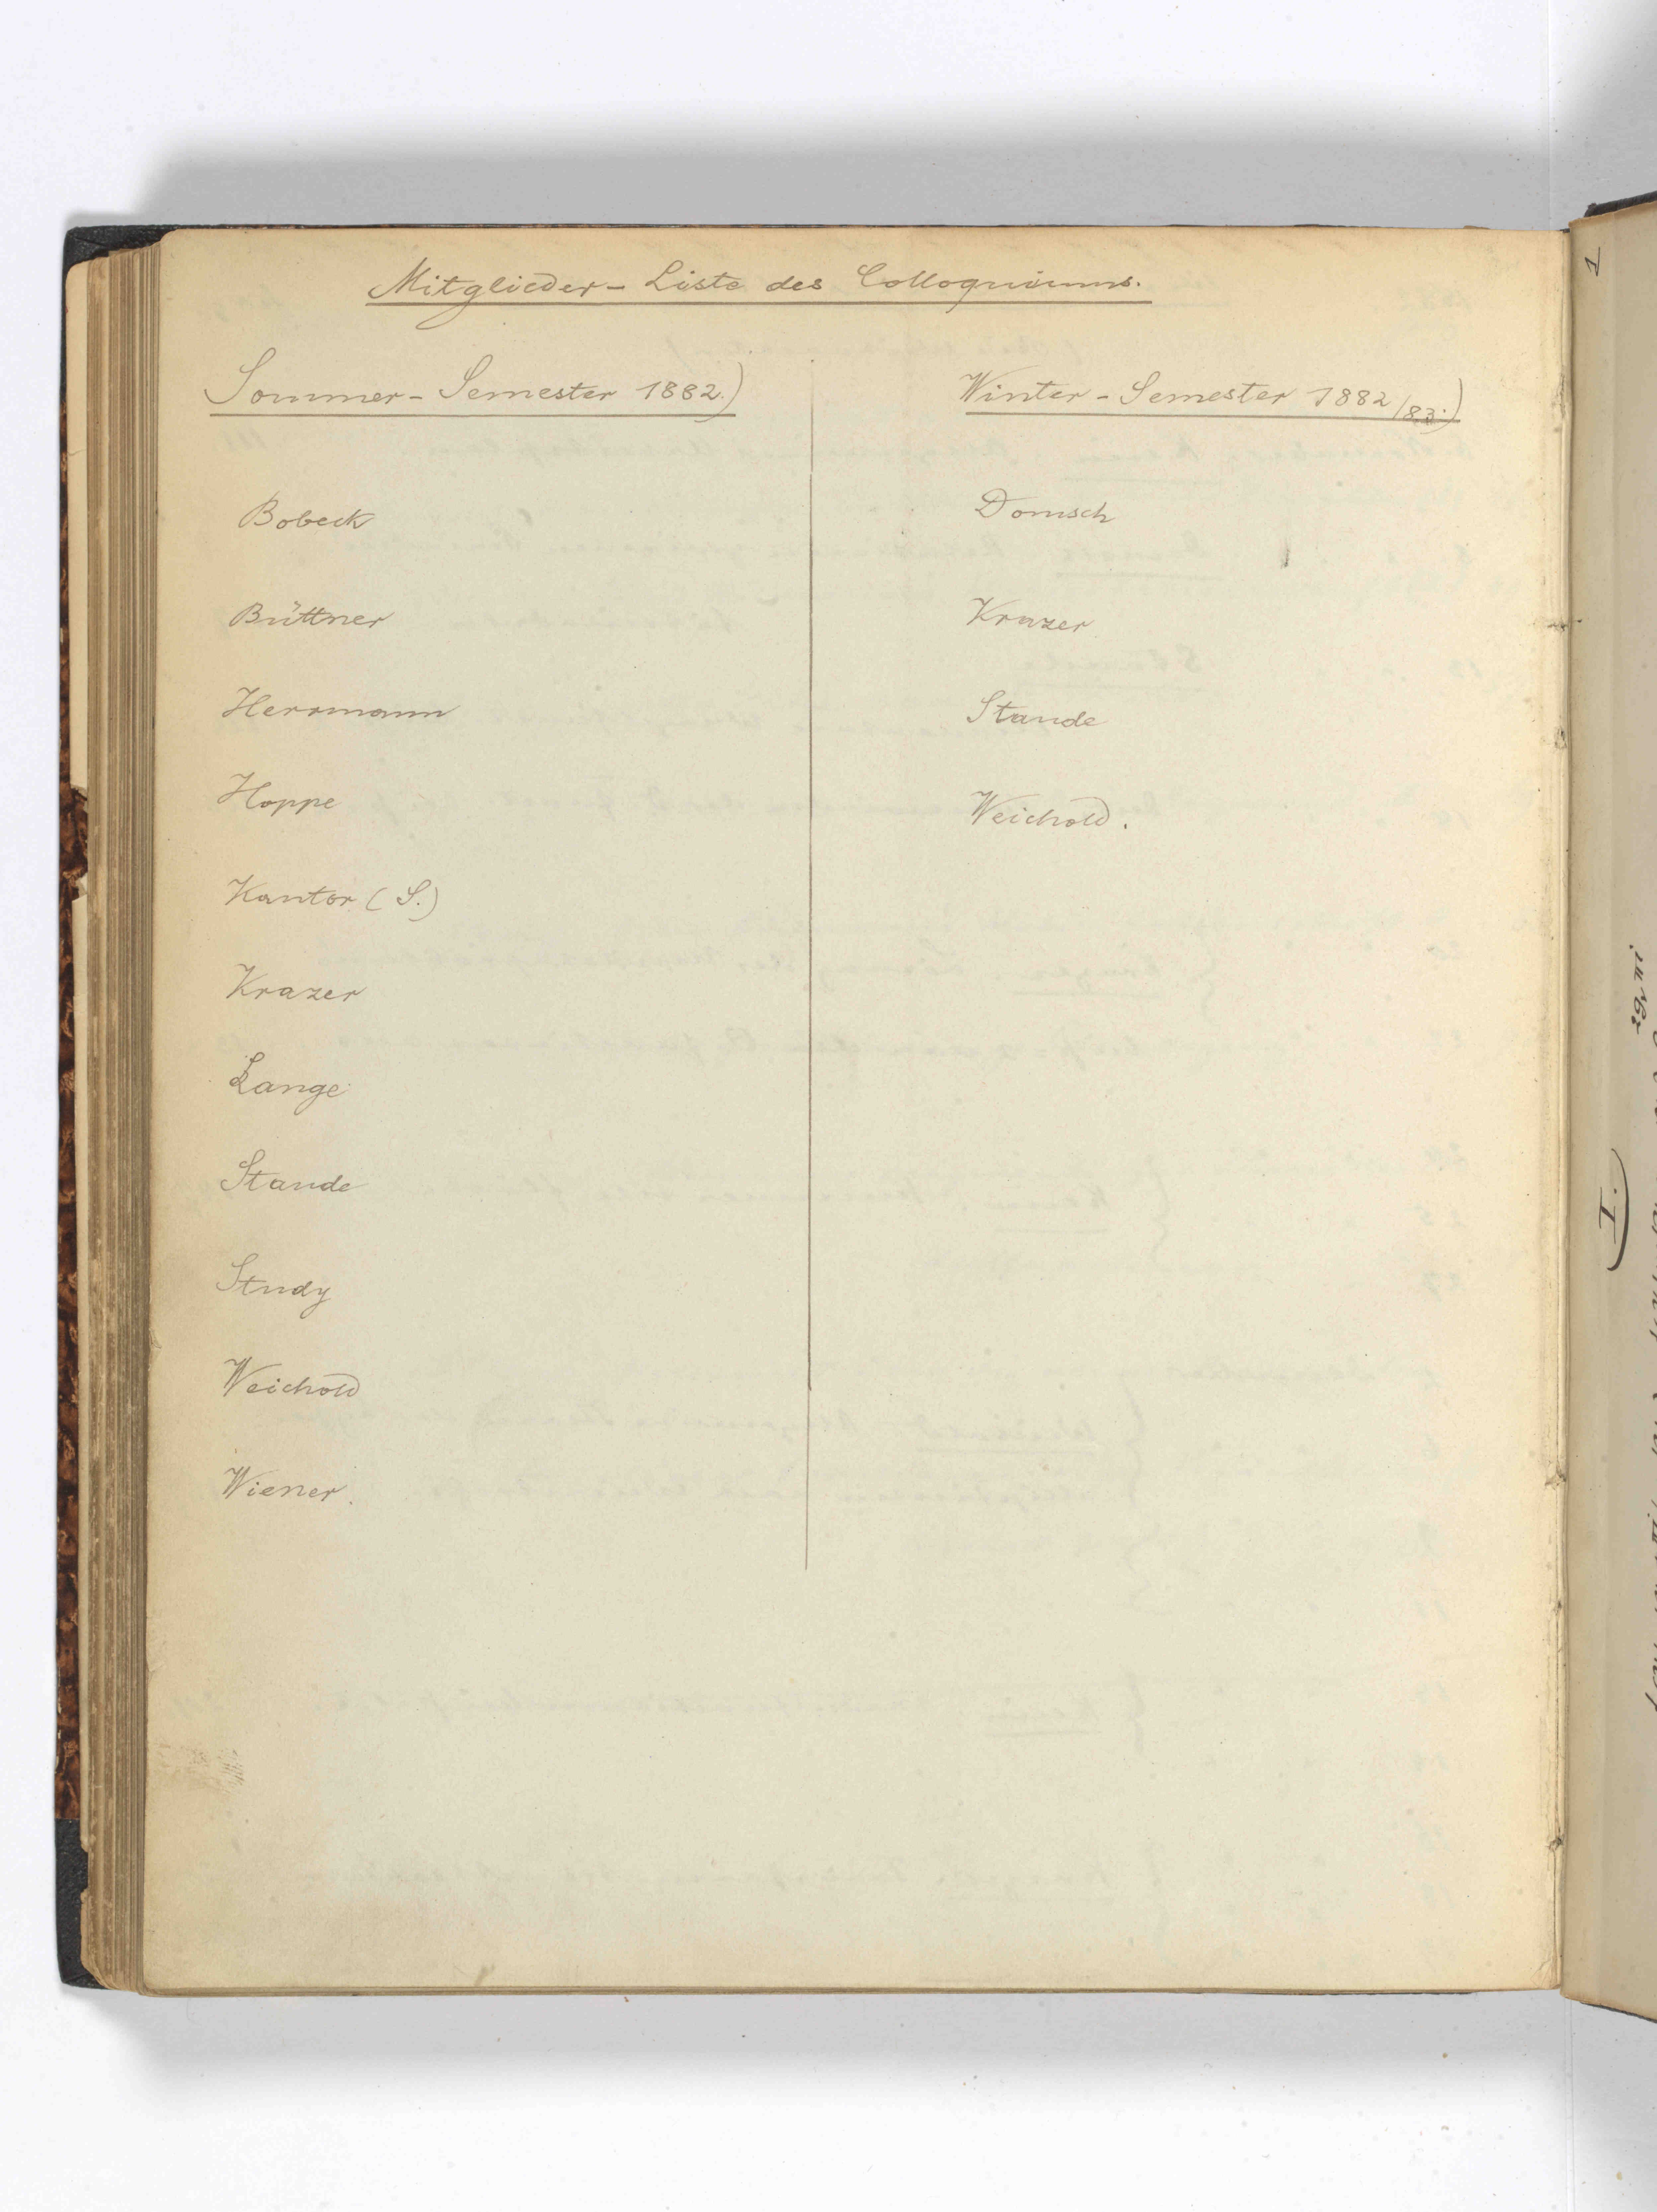 Mitglieder - Liste des Colloquiums.
Sommer - Semester 1882.)
Bobeck
Büttner
Herrmann
Hoppe
Kantor (S.)
Krazer
Lange
Staude
Study
Weichold
Wiener.
Winter - Semester 1882/83.)
Domsch
Krazer
Staude
Weichold.
1
I.)